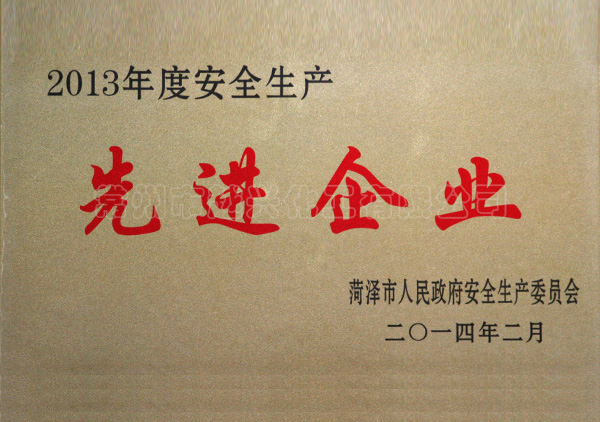 2013年度安全生产
先进企业
菏泽市人民政府安全生产委员会
二〇一四年二月